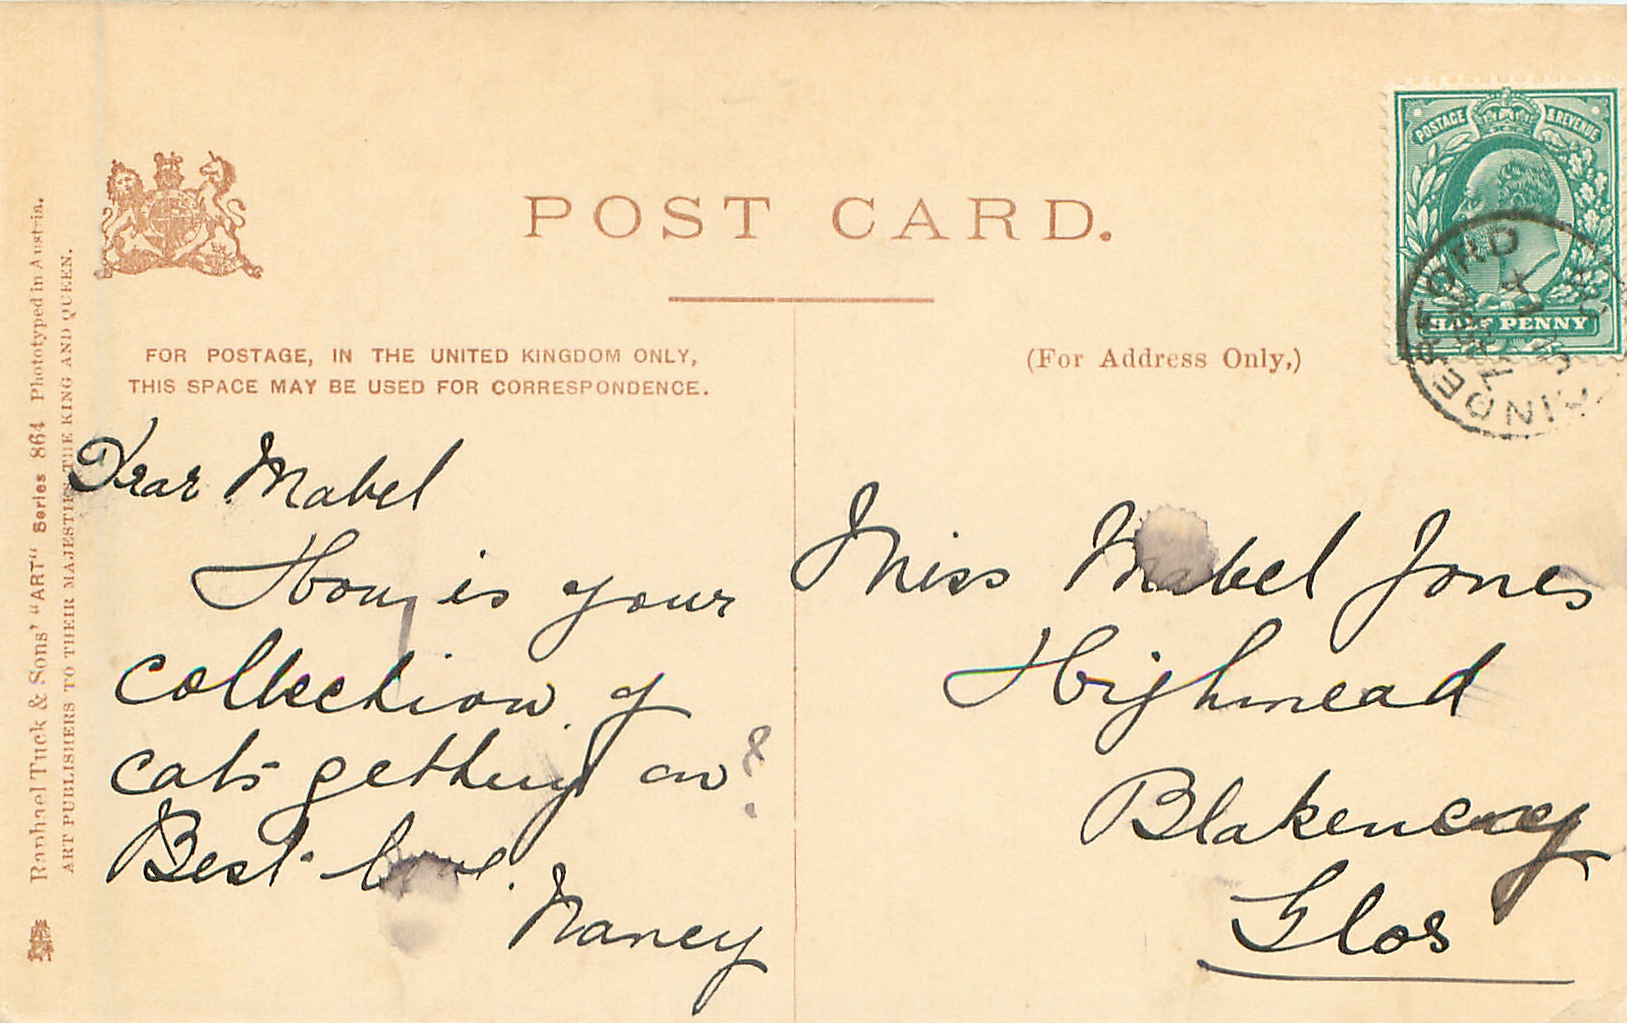 POST CARD.
POSTAGE & REVENUE
HALF PENNY
CINDERFORD
FOR POSTAGE, IN THE UNITED KINGDOM ONLY,
THIS SPACE MAY BE USED FOR CORRESPONDENCE.
(For Address Only,)
Dear Mabel
How is your
collection of
cats getting on?
Best love.
Nancy
Miss Mabel Jones
Highmead
Blakeney
Glos
Raphael Tuck & Sons' "ART" Series 864 Phototyped in Austria.
ART PUBLISHERS TO THEIR MAJESTIES THE KING AND QUEEN.